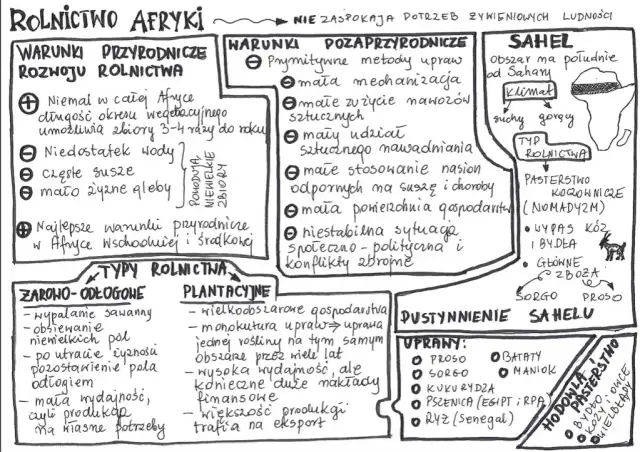 ROLNICTWO AFRYKI → NIE ZASPOKAJA POTRZEB ŻYWIENIOWYCH LUDNOŚCI
WARUNKI PRZYRODNICZE
ROZWOJU ROLNICTWA
+ Niemal w całej Afryce
długość okresu wegetacyjnego
umożliwia zbiory 3-4 razy do roku
- Niedostatek wody
- częste susze
- mało żyzne gleby
POWODUJĄ
NIEWIELKIE
ZBIORY
+ Najlepsze warunki przyrodnicze
w Afryce Wschodniej i środkowej
WARUNKI POZAPRZYRODNICZE
- Prymitywne metody upraw
- mała mechanizacja
- małe zużycie nawozów
sztucznych
- mały udział
sztucznego nawadniania
- małe stosowanie nasion
odpornych na suszę i choroby
- mała powierzchnia gospodarstw
- niestabilna sytuacja
społeczno-polityczna i
konflikty zbrojne
SAHEL
obszar na południe
od Sahary
klimat
suchy gorący
TYP
ROLNICTWA
PASTERSTWO
KOCZOWNICZE
(NOMADYZM)
• WYPAS KÓZ
I BYDŁA
• GŁÓWNE
ZBOŻA
SORGO PROSO
PUSTYNNIENIE SAHELU
TYPY ROLNICTWA
ŻAROWO-ODŁOGOWE
- wypalanie sawanny
- obsiewanie
niewielkich pól
- po utracie żyzności
pozostawienie pola
odłogiem
- mała wydajność,
czyli produkcja
na własne potrzeby
PLANTACYJNE
- wielkoobszarowe gospodarstwa
- monokultura upraw ⇒ uprawa
jednej rośliny na tym samym
obszarze przez wiele lat
- wysoka wydajność, ale
konieczne duże nakłady
finansowe
- większość produkcji
trafia na eksport
UPRAWY:
PROSO
SORGO
KUKURYDZA
PSZENICA (EGIPT i RPA)
RYŻ (Senegal)
BATATY
MANIOK
HODOWLA I
PASTERSTWO
BYDŁO
KOZY i OWCE
WIELBŁĄDY